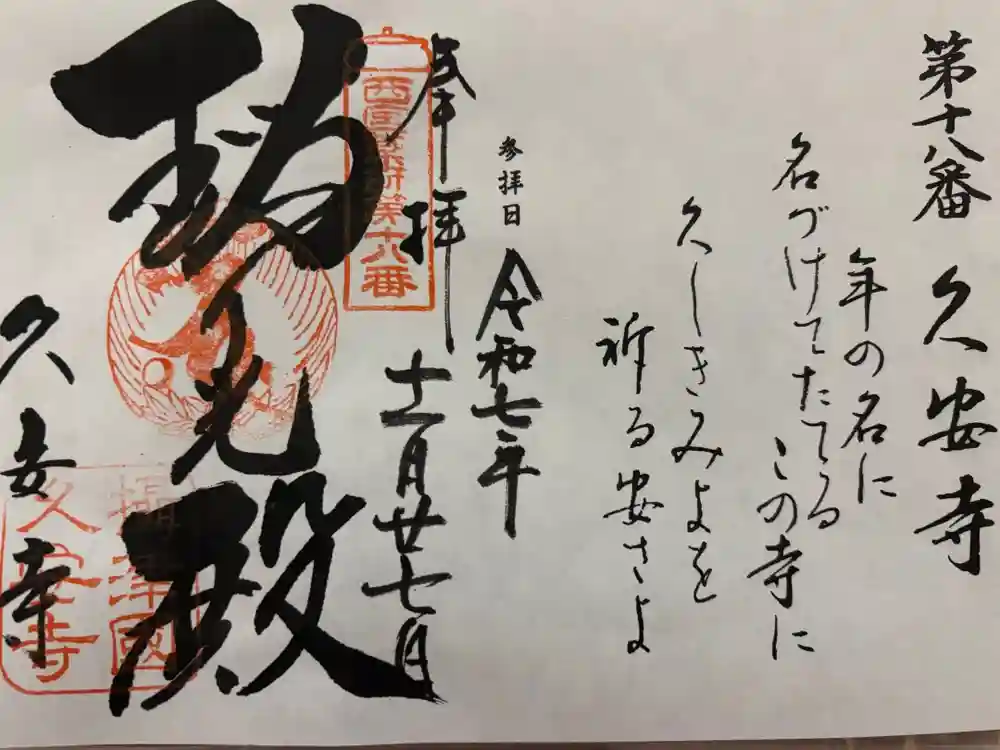 第十八番 久安寺
年の名に
名づけてたてる
この寺に
久しきみよを
祈る安さよ
参拝日
令和七年
十一月廿七日
奉拝
西国薬師第十八番
光殿
久安寺
攝津國
久安寺